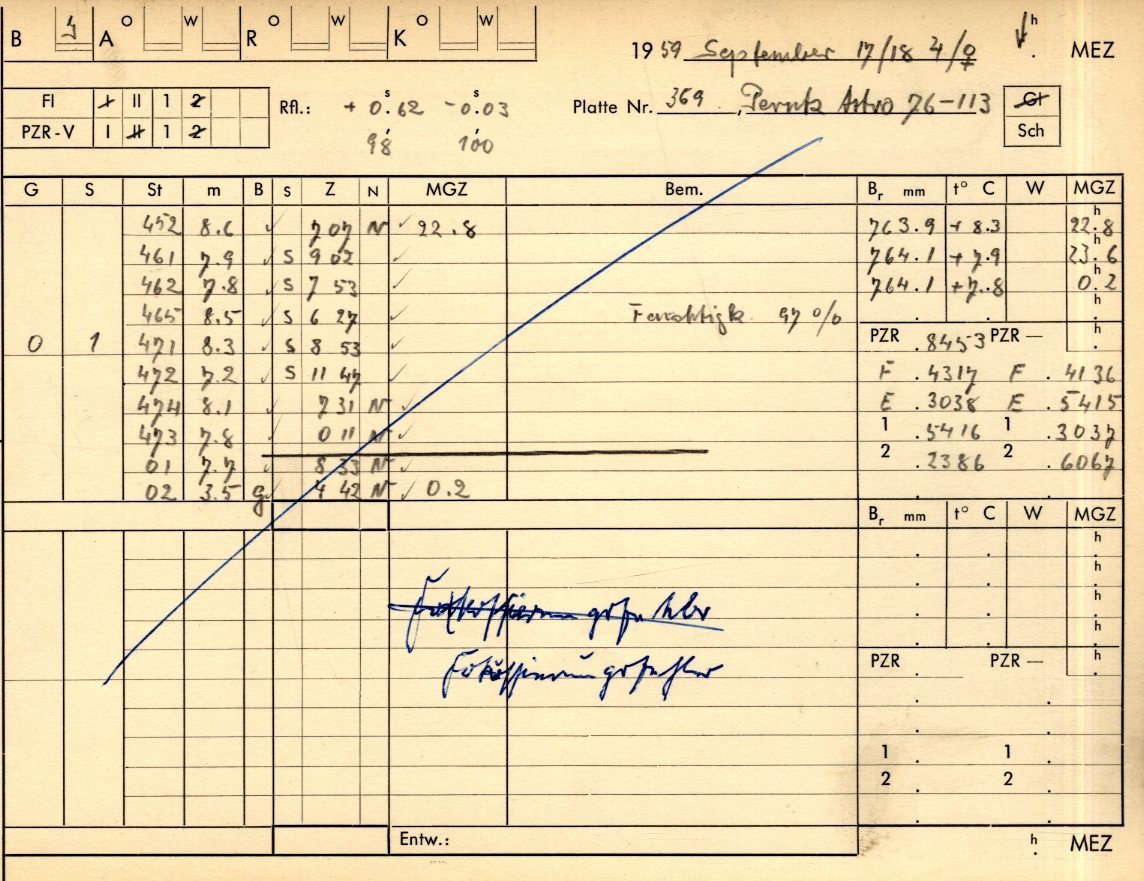 B A O W R O W K O W
1959 September 17/18 ♃/♀ h MEZ
FI I II 1 2 Rfl.: + 0.62 s - 0.03 s Platte Nr. 369 , Perutz Astro 76-113 Gl
PZR-V I II 1 2 98 100 Sch
G S St m B S Z N MGZ Bem. Br mm t° C W MGZ
452 8.6 ✓ 7 07 N ✓ 22.8 763.9 + 8.3 22.8 h
461 7.9 ✓ S 9 02 ✓ 764.1 + 7.9 23.6 h
462 7.8 ✓ S 7 53 ✓ 764.1 +7.8 0.2 h
465 8.5 ✓ S 6 27 ✓ Feuchtigk. 97 % . . h
0 1 471 8.3 ✓ S 8 53 ✓ PZR .8453 PZR — h
472 7.2 ✓ S 11 47 ✓ F .4317 F .4136
474 8.1 ✓ 7 31 N ✓ E .3038 E .5415
473 7.8 ✓ 0 11 N ✓ 1 .5416 1 .3037
01 7.7 ✓ 8 33 N ✓ 2 .2386 2 .6067
02 3.5 g ✓ 4 42 N ✓ 0.2
Br mm t° C W MGZ
. . h
. . h
. . h
. . h
Fokussierungsfehler
PZR . PZR — h
1 . 1 .
2 . 2 .
Entw.: h MEZ